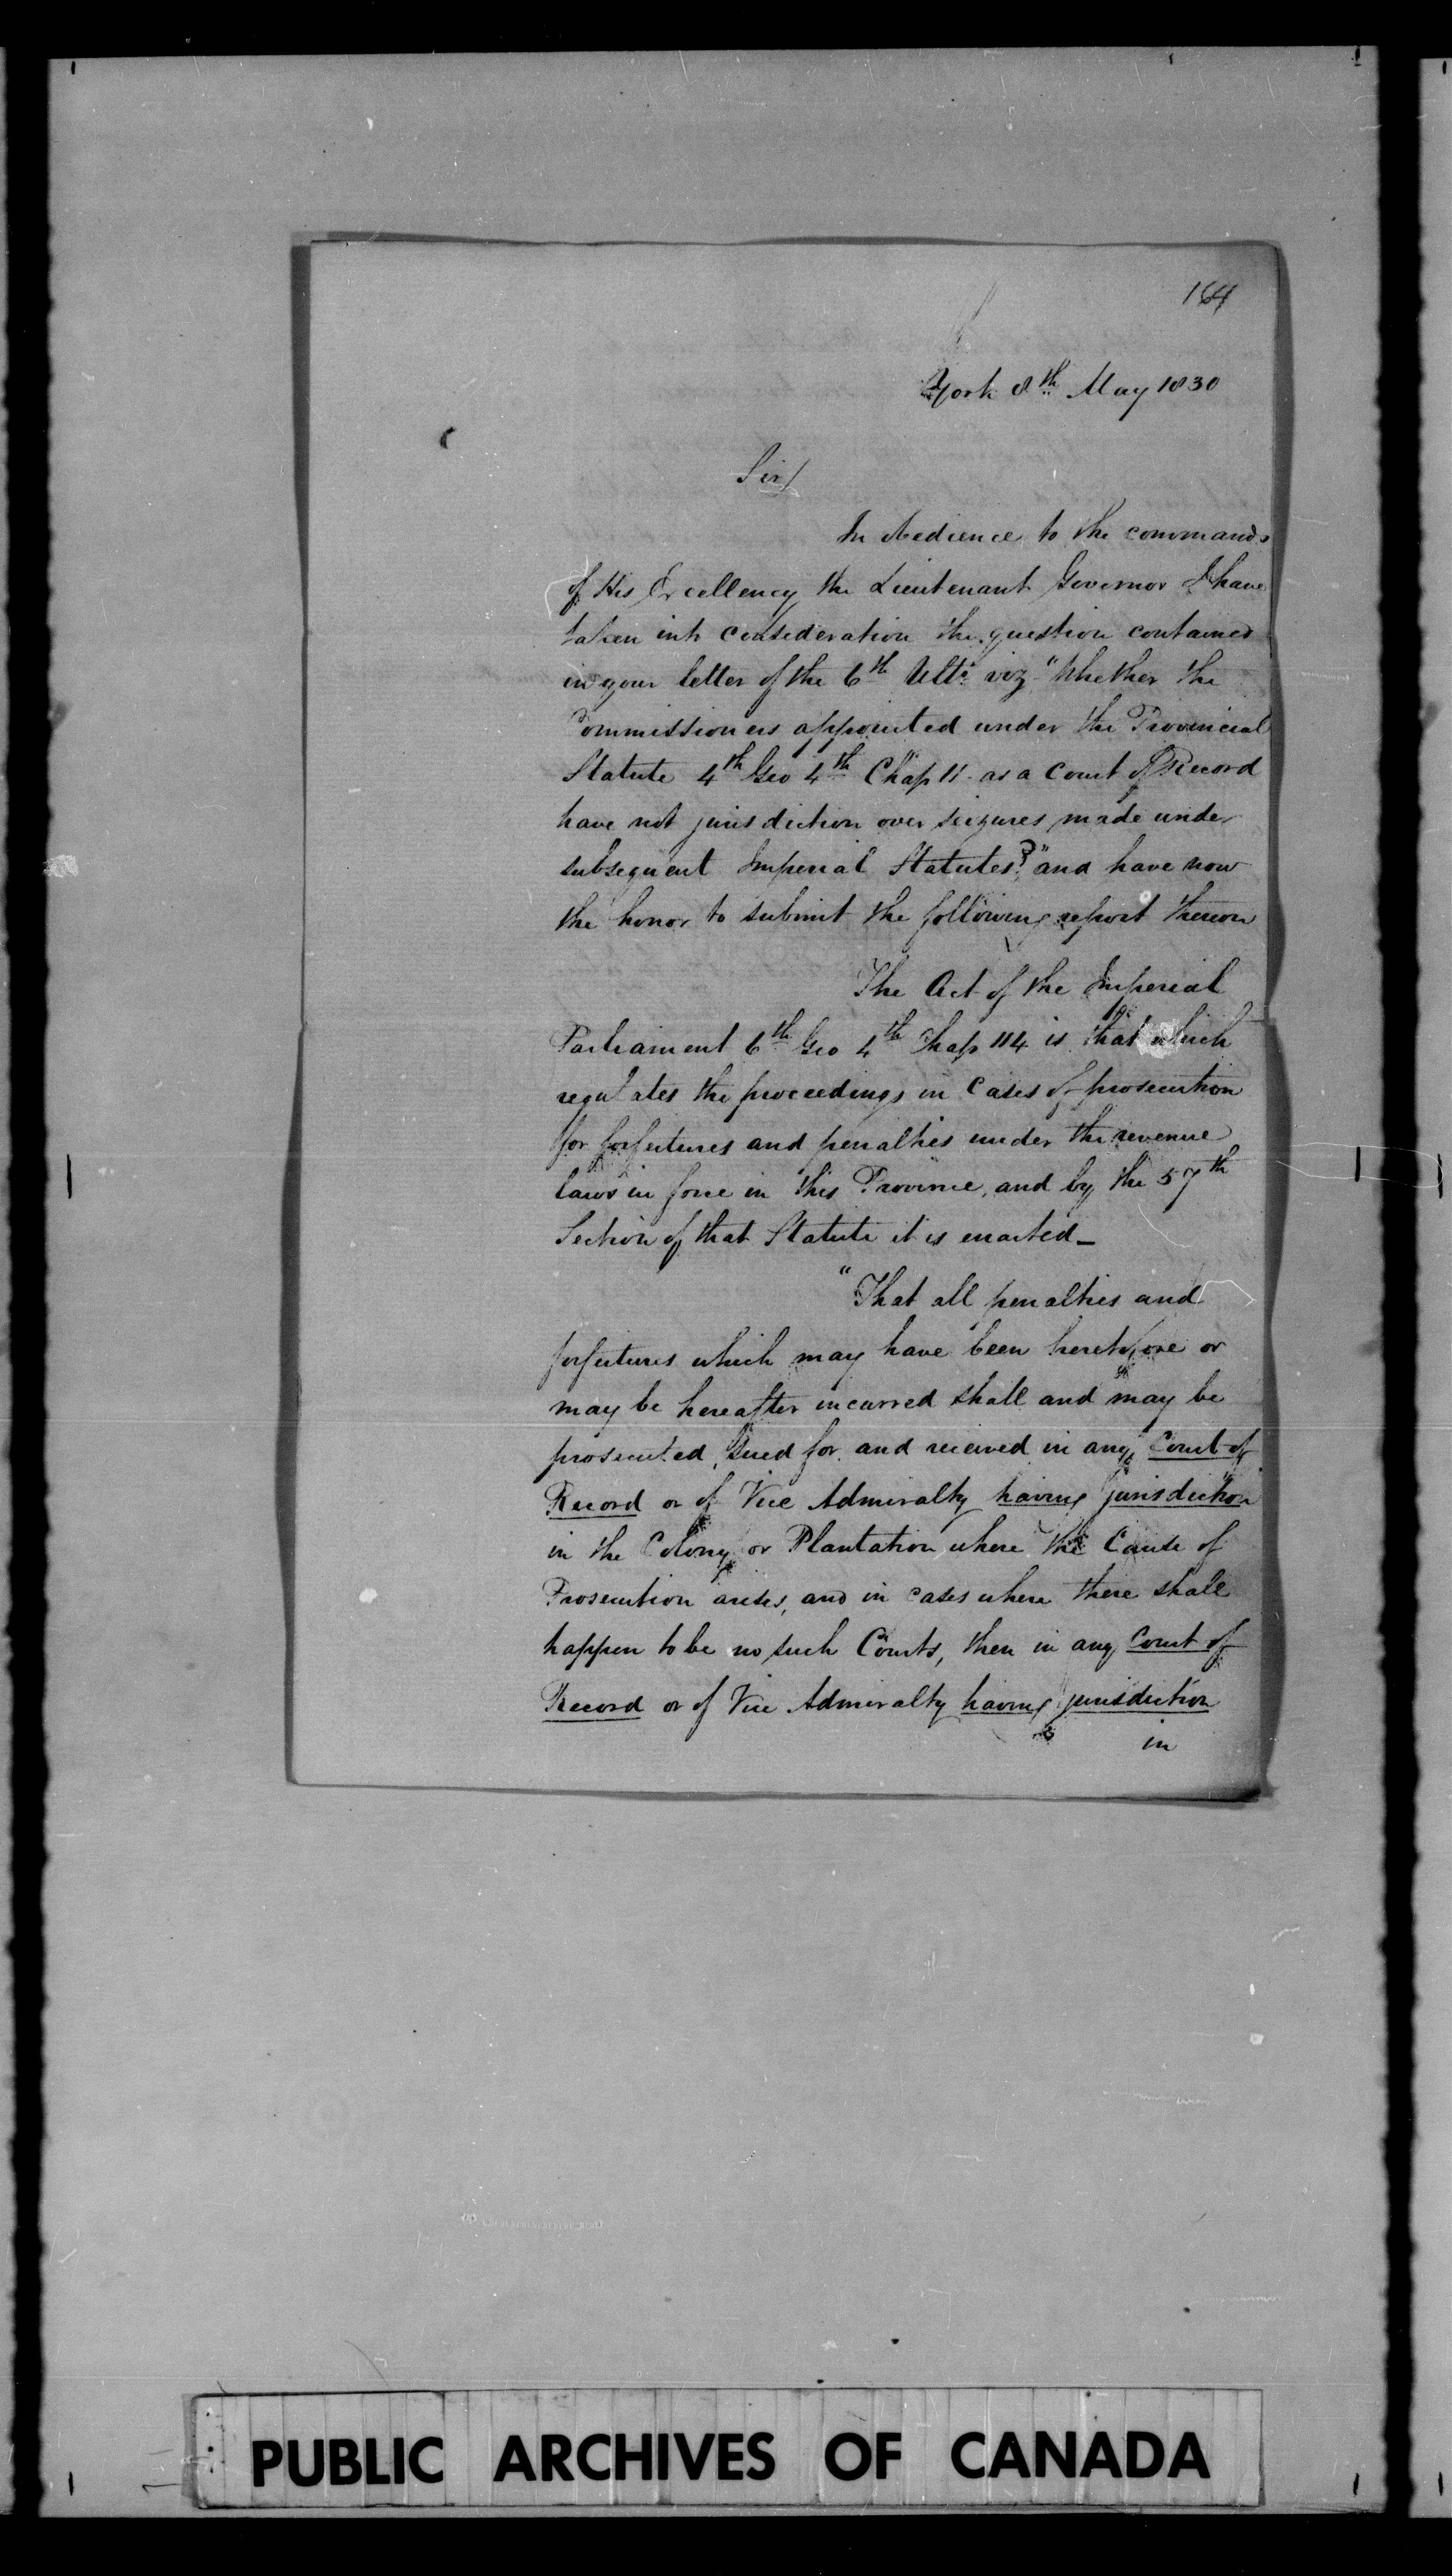 164
York 8th May 1830
Sir/
In obedience to the commands
of His Excellency the Lieutenant Governor I have
taken into consideration the question contained
in your letter of the 6th Ulto viz "Whether the
Commissioners appointed under the Provincial
Statute 4th Geo 4th Chap 11 as a Court of Record
have not jurisdiction over seizures made under
subsequent Imperial Statutes?" and have now
the honor to submit the following report thereon
The Act of the Imperial
Parliament 6th Geo 4th Chap 114 is that which
regulates the proceedings in Cases of prosecution
for forfeitures and penalties under the revenue
laws in force in this Province, and by the 57th
Section of that Statute it is enacted_
"That all penalties and
forfeitures which may have been heretofore or
may be hereafter incurred shall and may be
prosecuted, sued for and received in any Court of
Record or of Vice Admiralty having jurisdiction
in the Colony or Plantation where the Cause of
Prosecution arises, and in cases where there shall
happen to be no such Courts, then in any Court of
Record or of Vice Admiralty having jurisdiction
in
PUBLIC ARCHIVES OF CANADA